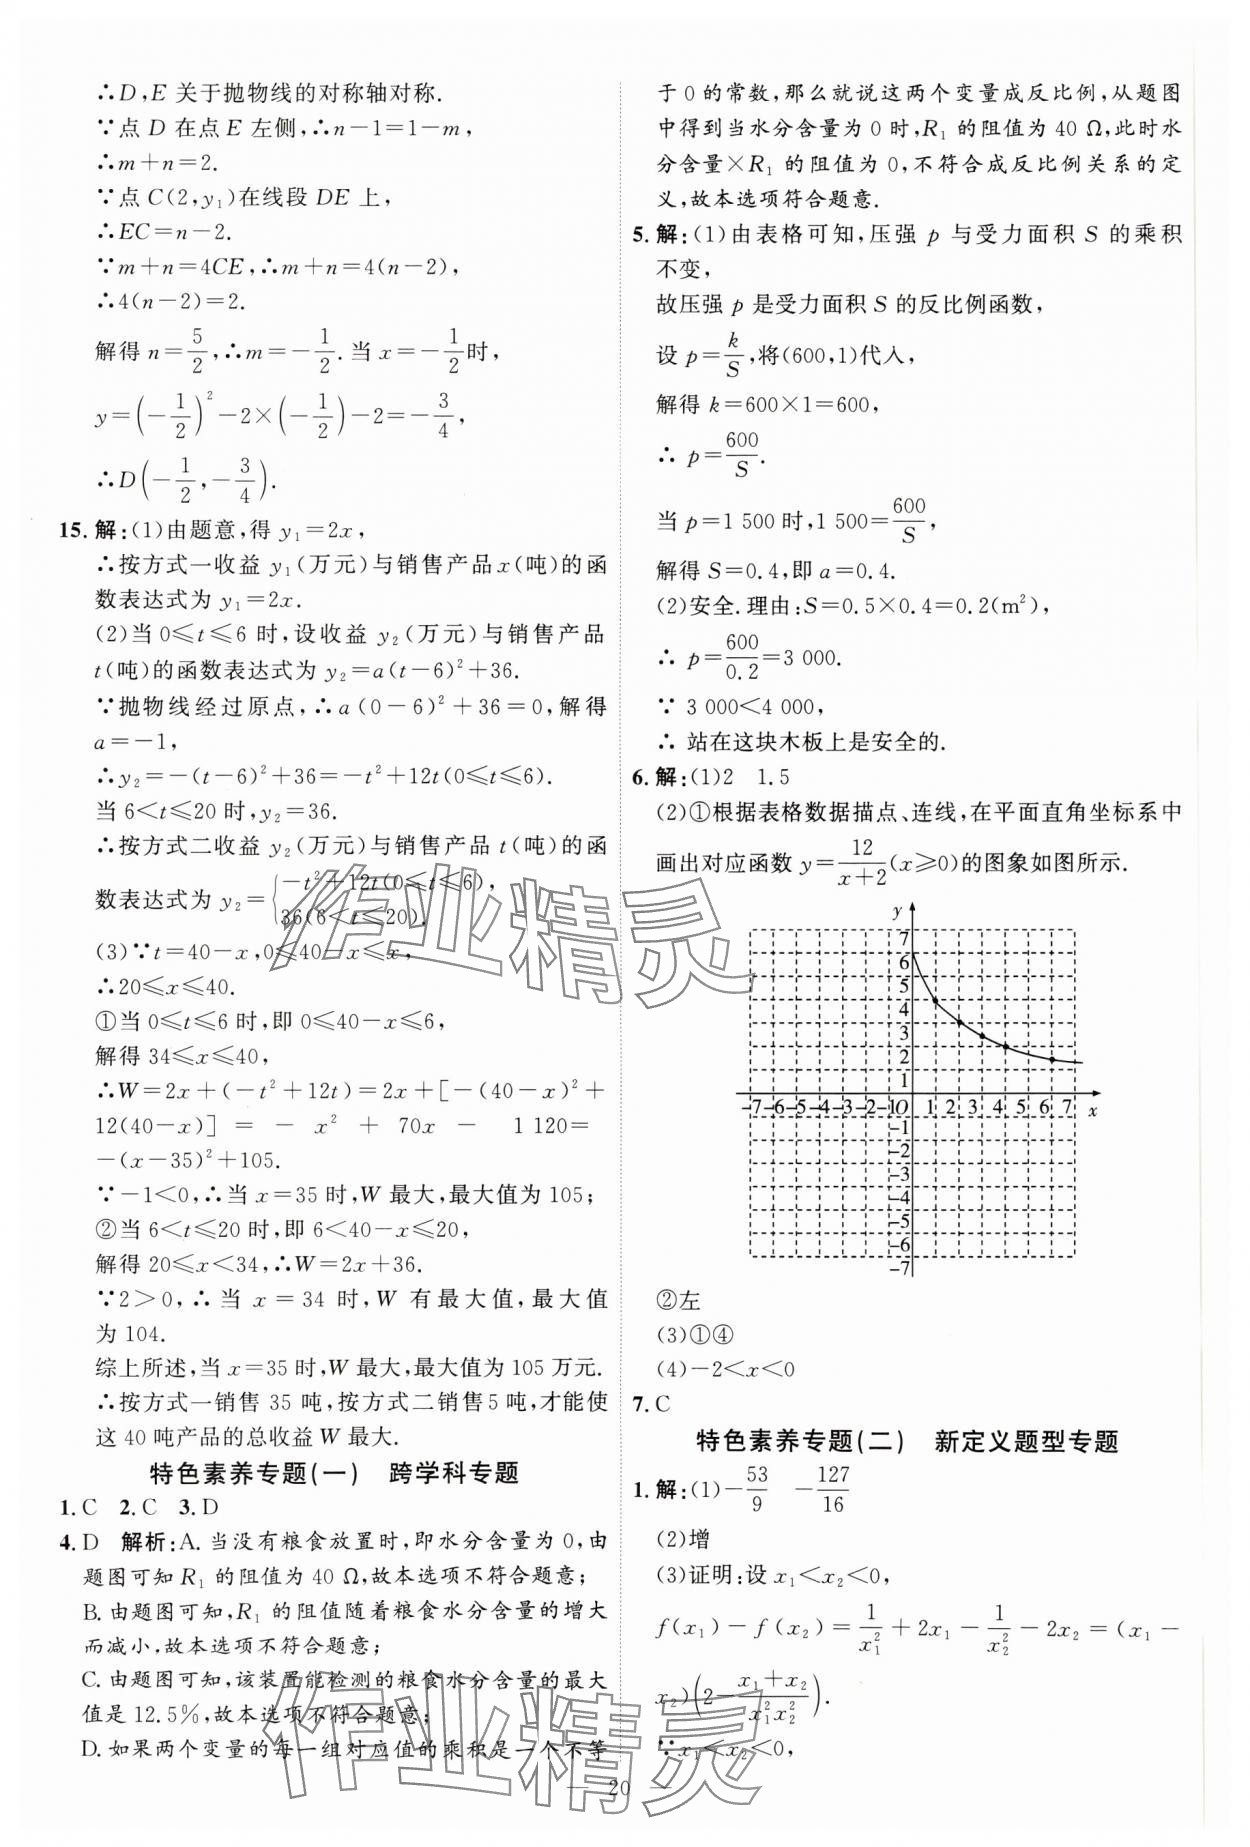 ∴D,E 关于抛物线的对称轴对称.
∵点 D 在点 E 左侧,∴n-1=1-m,
∴m+n=2.
∵点 C(2,y₁)在线段 DE 上,
∴EC=n-2.
∵m+n=4CE,∴m+n=4(n-2),
∴4(n-2)=2.
解得 n=5/2,∴m=-1/2.当 x=-1/2时,
y=(-1/2)²-2×(-1/2)-2=-3/4,
∴D(-1/2,-3/4).
15.解:(1)由题意,得 y₁=2x,
∴按方式一收益 y₁(万元)与销售产品x(吨)的函
数表达式为 y₁=2x.
(2)当 0≤t≤6 时,设收益 y₂(万元)与销售产品
t(吨)的函数表达式为 y₂=a(t-6)²+36.
∵抛物线经过原点,∴a(0-6)²+36=0,解得
a=-1,
∴y₂=-(t-6)²+36=-t²+12t(0≤t≤6).
当 6<t≤20 时,y₂=36.
∴按方式二收益 y₂(万元)与销售产品 t(吨)的函
数表达式为 y₂={-t²+12t(0≤t≤6),
36(6<t≤20).
(3)∵t=40-x,0≤40-x≤x,
∴20≤x≤40.
①当 0≤t≤6 时,即 0≤40-x≤6,
解得 34≤x≤40,
∴W=2x+(-t²+12t)=2x+[-(40-x)²+
12(40-x)] = - x² + 70x - 1 120=
-(x-35)²+105.
∵-1<0,∴当 x=35 时,W 最大,最大值为 105;
②当 6<t≤20 时,即 6<40-x≤20,
解得 20≤x<34,∴W=2x+36.
∵2>0,∴当 x=34 时,W 有最大值,最大值
为 104.
综上所述,当 x=35 时,W 最大,最大值为 105 万元.
∴按方式一销售 35 吨,按方式二销售5 吨,才能使
这 40 吨产品的总收益 W 最大.
特色素养专题(一) 跨学科专题
1.C 2.C 3.D
4.D 解析:A.当没有粮食放置时,即水分含量为 0,由
题图可知 R₁ 的阻值为 40 Ω,故本选项不符合题意;
B.由题图可知,R₁ 的阻值随着粮食水分含量的增大
而减小,故本选项不符合题意;
C.由题图可知,该装置能检测的粮食水分含量的最大
值是 12.5%,故本选项不符合题意;
D.如果两个变量的每一组对应值的乘积是一个不等
于 0 的常数,那么就说这两个变量成反比例,从题图
中得到当水分含量为 0 时,R₁ 的阻值为 40 Ω,此时水
分含量×R₁ 的阻值为 0,不符合成反比例关系的定
义,故本选项符合题意.
5.解:(1)由表格可知,压强 p 与受力面积 S 的乘积
不变,
故压强 p 是受力面积 S 的反比例函数,
设 p=k/S,将(600,1)代入,
解得 k=600×1=600,
∴ p=600/S.
当 p=1 500 时,1 500=600/S,
解得 S=0.4,即 a=0.4.
(2)安全.理由:S=0.5×0.4=0.2(m²),
∴ p=600/0.2=3 000.
∵ 3 000<4 000,
∴ 站在这块木板上是安全的.
6.解:(1)2 1.5
(2)①根据表格数据描点、连线,在平面直角坐标系中
画出对应函数 y=12/(x+2)(x≥0)的图象如图所示.
y
7
6
5
4
3
2
1
-7-6-5-4-3-2-1O 1 2 3 4 5 6 7 x
-1
-2
-3
-4
-5
-6
-7
②左
(3)①④
(4)-2<x<0
7.C
特色素养专题(二) 新定义题型专题
1.解:(1)-53/9 -127/16
(2)增
(3)证明:设 x₁<x₂<0,
f(x₁)-f(x₂)=1/x₁²+2x₁-1/x₂²-2x₂=(x₁-
x₂)(2-(x₁+x₂)/(x₁²x₂²)).
∵x₁<x₂<0,
— 20 —
作业精灵
作业精灵